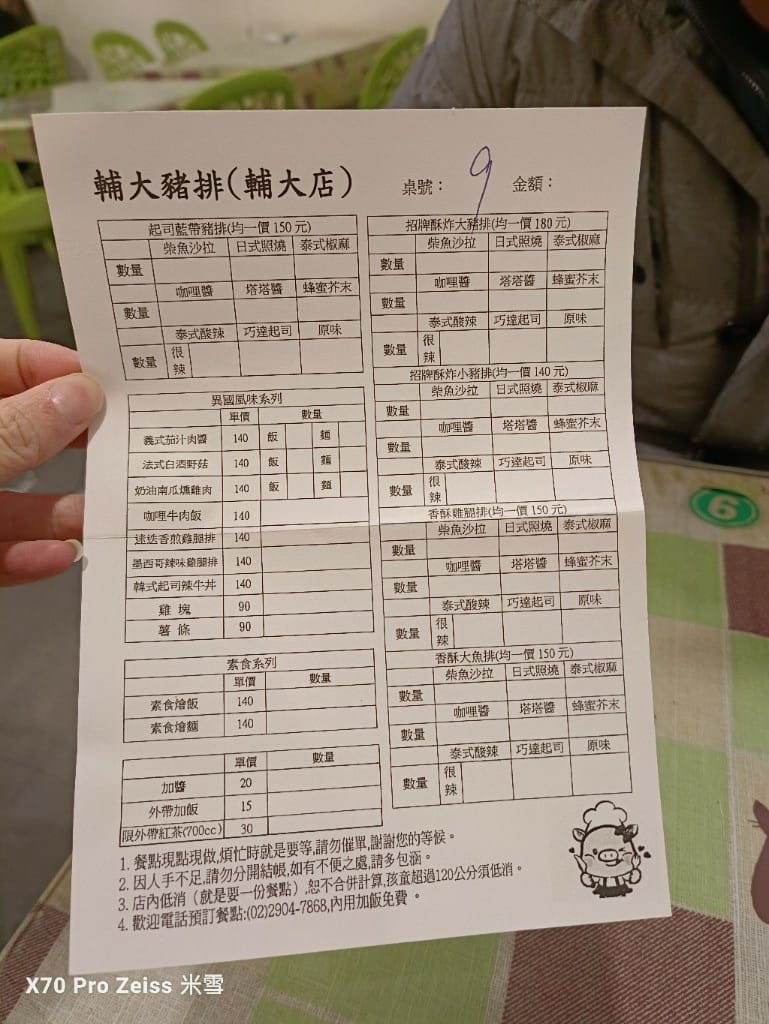 輔大豬排(輔大店) 桌號： 9 金額：
起司藍帶豬排(均一價 150 元)
柴魚沙拉 日式照燒 泰式椒麻
數量
咖哩醬 塔塔醬 蜂蜜芥末
數量
泰式酸辣 巧達起司 原味
數量 很辣
異國風味系列
單價 數量
義式茄汁肉醬 140 飯 麵
法式白酒野菇 140 飯 麵
奶油南瓜燻雞肉 140 飯 麵
咖哩牛肉飯 140
迷迭香煎雞腿排 140
墨西哥辣味雞腿排 140
韓式起司辣牛丼 140
雞塊 90
薯條 90
素食系列
單價 數量
素食燴飯 140
素食燴麵 140
單價 數量
加醬 20
外帶加飯 15
限外帶紅茶(700cc) 30
招牌酥炸大豬排(均一價 180 元)
柴魚沙拉 日式照燒 泰式椒麻
數量
咖哩醬 塔塔醬 蜂蜜芥末
數量
泰式酸辣 巧達起司 原味
數量 很辣
招牌酥炸小豬排(均一價 140 元)
柴魚沙拉 日式照燒 泰式椒麻
數量
咖哩醬 塔塔醬 蜂蜜芥末
數量
泰式酸辣 巧達起司 原味
數量 很辣
香酥雞腿排(均一價 150 元)
柴魚沙拉 日式照燒 泰式椒麻
數量
咖哩醬 塔塔醬 蜂蜜芥末
數量
泰式酸辣 巧達起司 原味
數量 很辣
香酥大魚排(均一價 150 元)
柴魚沙拉 日式照燒 泰式椒麻
數量
咖哩醬 塔塔醬 蜂蜜芥末
數量
泰式酸辣 巧達起司 原味
數量 很辣
1. 餐點現點現做,煩忙時就是要等,請勿催單,謝謝您的等候。
2. 因人手不足,請勿分開結帳,如有不便之處,請多包涵。
3. 店內低消（就是要一份餐點）,恕不合併計算,孩童超過120公分須低消。
4. 歡迎電話預訂餐點:(02)2904-7868,內用加飯免費 。
9
X70 Pro Zeiss 米雪